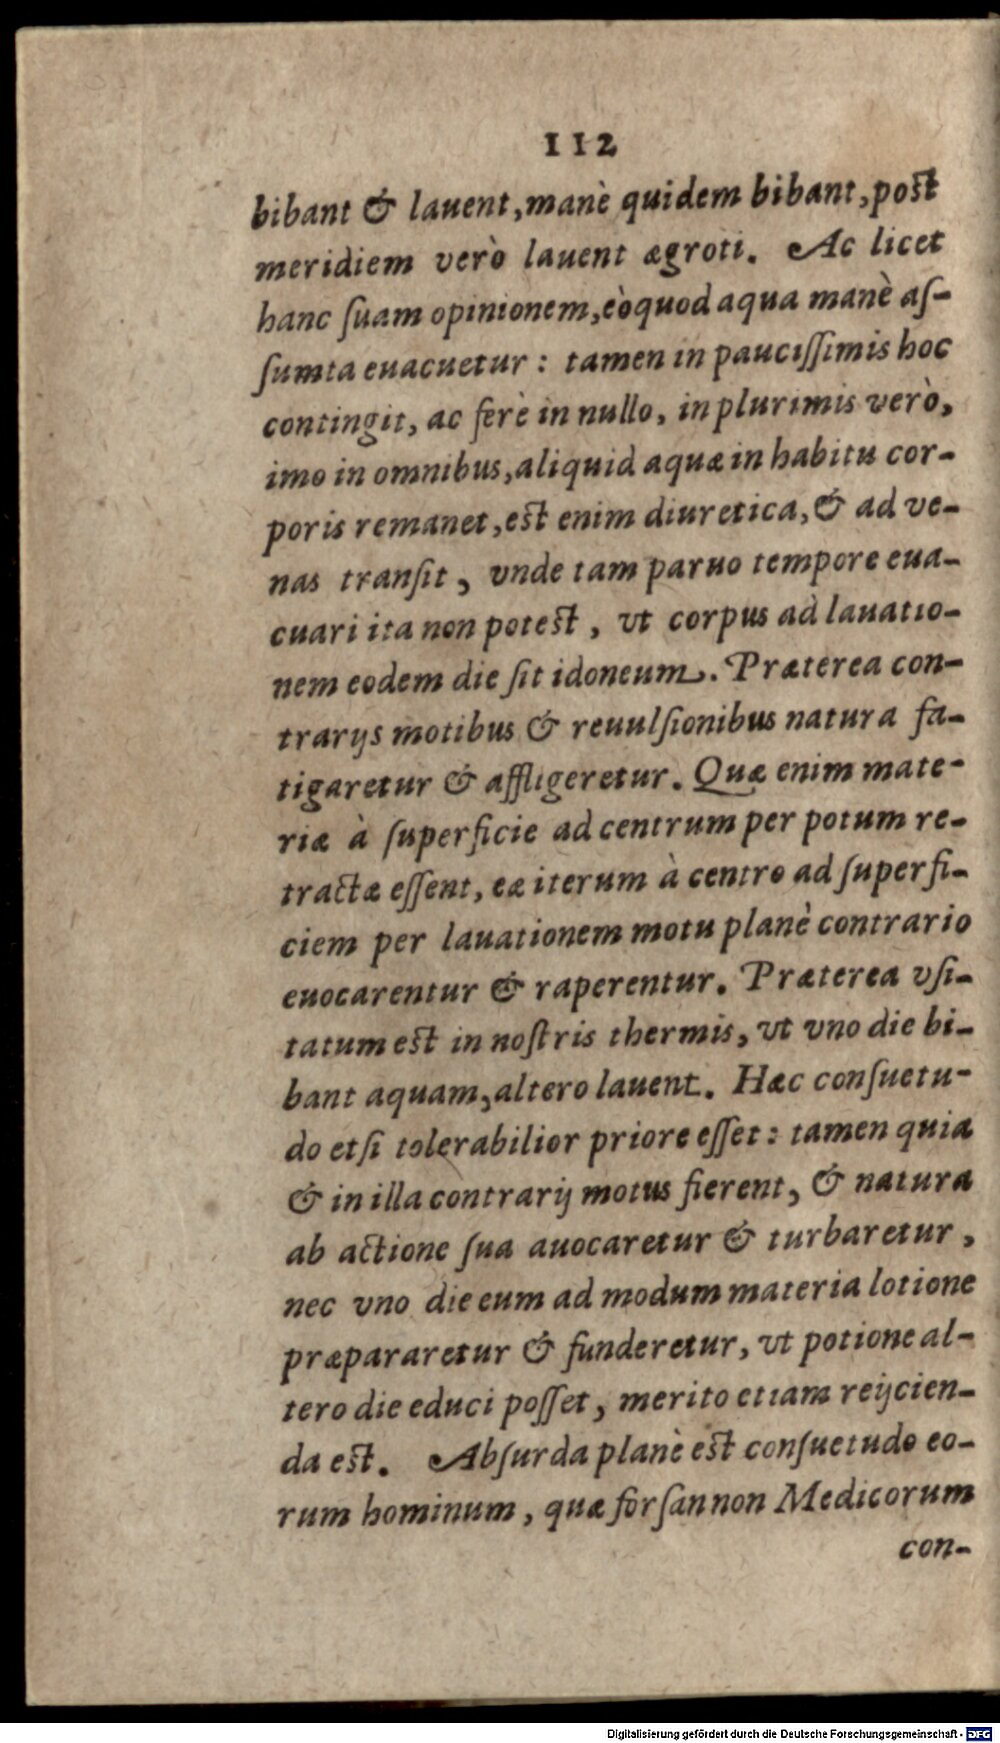 112
bibant & lauent, manè quidem bibant, post
meridiem verò lauent ægroti. Ac licet
hanc ſuam opinionem, eòquod aqua manè aſ-
ſumta euacuetur: tamen in pauciſſimis hoc
contingit, ac ferè in nullo, in plurimis verò,
imo in omnibus, aliquid aquæ in habitu cor-
poris remanet, est enim diuretica, & ad ve-
nas tranſit, vnde tam paruo tempore eua-
cuari ita non potest, vt corpus ad lauatio-
nem eodem die ſit idoneum. Præterea con-
trarijs motibus & reuulſionibus natura fa-
tigaretur & affligeretur. Quæ enim mate-
riæ à ſuperficie ad centrum per potum re-
tractæ eſſent, eæ iterum à centro ad ſuperfi-
ciem per lauationem motu planè contrario
euocarentur & raperentur. Præterea vſi-
tatum est in noſtris thermis, vt vno die bi-
bant aquam, altero lauent. Hæc conſuetu-
do etſi tolerabilior priore eſſet: tamen quia
& in illa contrarij motus fierent, & natura
ab actione ſua auocaretur & turbaretur,
nec vno die eum ad modum materia lotione
præpararetur & funderetur, vt potione al-
tero die educi poſſet, merito etiam reijcien-
da est. Abſurda planè est conſuetudo eo-
rum hominum, quæ forſan non Medicorum
con-
Digitalisierung gefördert durch die Deutsche Forschungsgemeinschaft - DFG